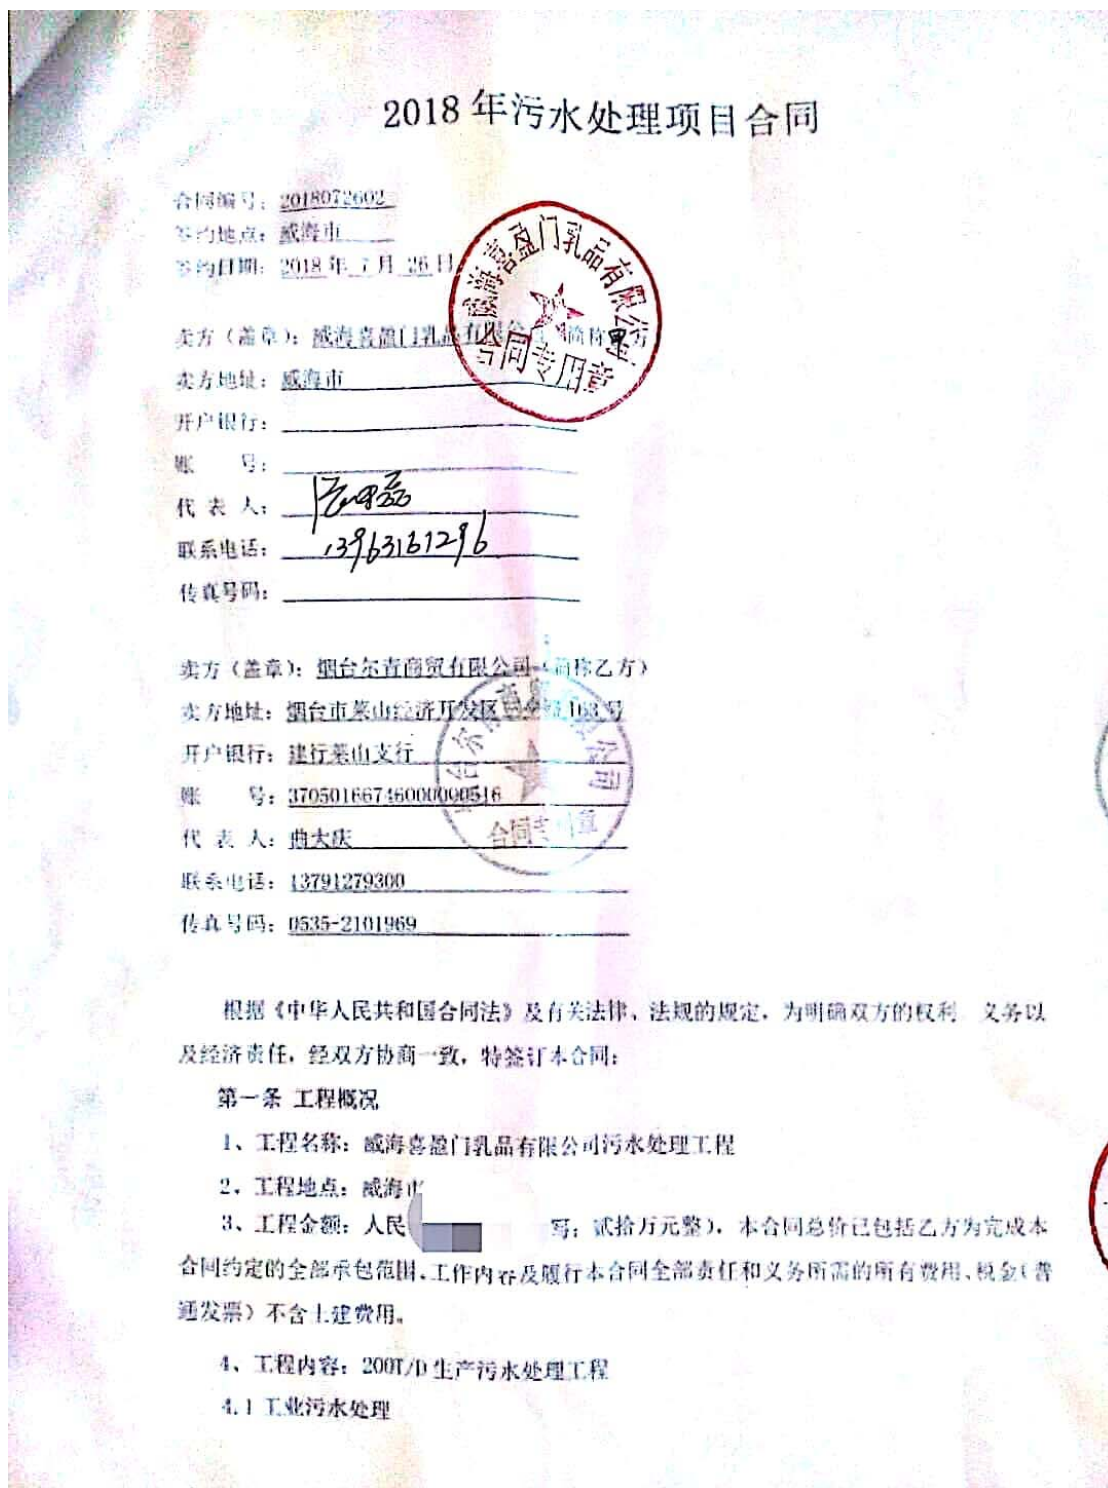 2018年污水处理项目合同
合同编号：2018072602
签约地点：威海市
签约日期：2018年7月26日
卖方（盖章）：威海喜盈门乳品有限公司（简称甲方
威海喜盈门乳品有限公司
合同专用章
卖方地址：威海市
开户银行：
账 号：
代 表 人：
联系电话：13963161296
传真号码：
卖方（盖章）：烟台尔青商贸有限公司（简称乙方）
卖方地址：烟台市莱山经济开发区 163号
开户银行：建行莱山支行
账 号：37050166746000000516
代 表 人：曲大庆
联系电话：13791279300
传真号码：0535-2101969
合同专用章
根据《中华人民共和国合同法》及有关法律、法规的规定，为明确双方的权利 义务以
及经济责任，经双方协商一致，特签订本合同：
第一条 工程概况
1、工程名称：威海喜盈门乳品有限公司污水处理工程
2、工程地点：威海市
3、工程金额：人民 写：贰拾万元整），本合同总价已包括乙方为完成本
合同约定的全部承包范围、工作内容及履行本合同全部责任和义务所需的所有费用、税金（普
通发票）不含土建费用。
4、工程内容：200T/D生产污水处理工程
4.1 工业污水处理